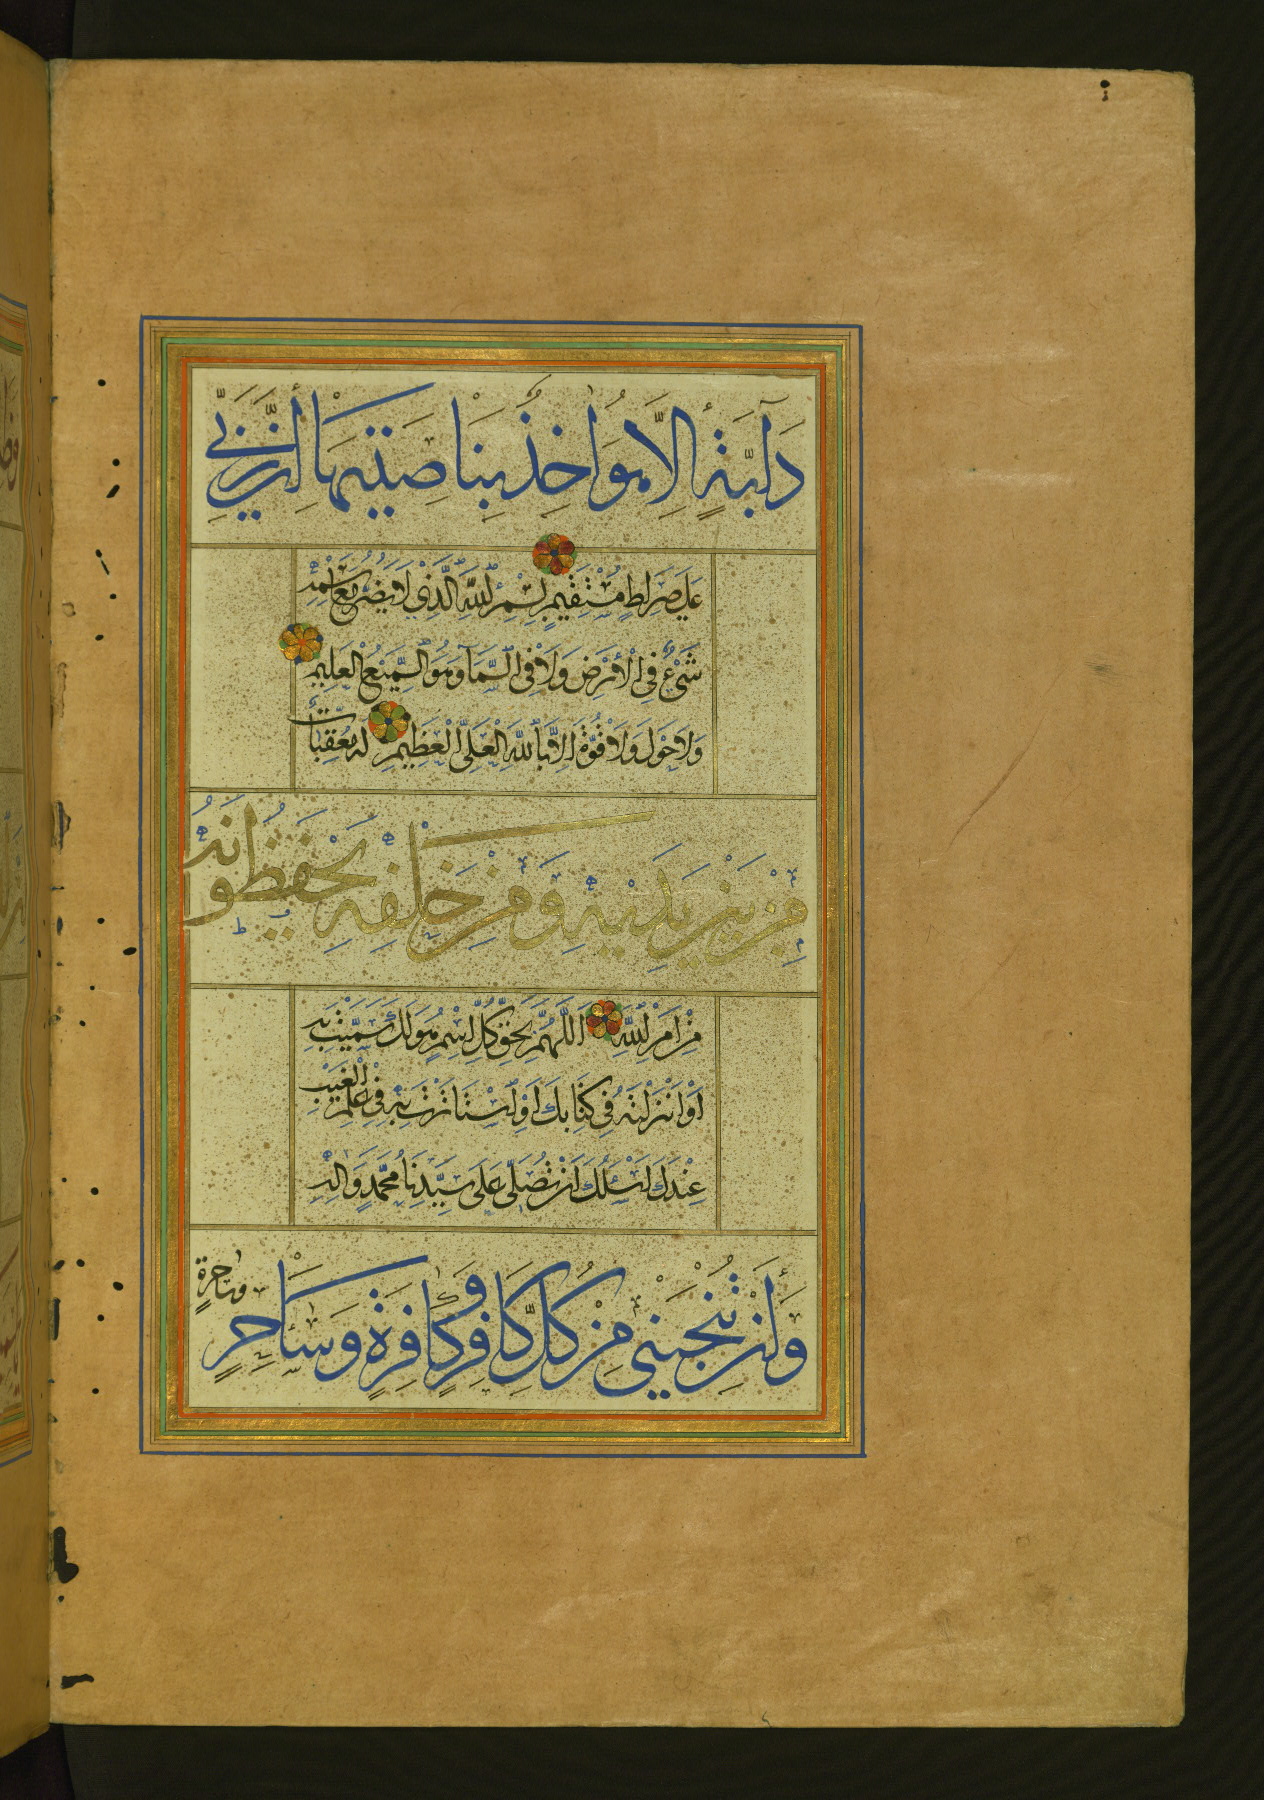 دَآبَّةٍ اِلَّا هُوَ اٰخِذٌ بِنَاصِيَتِهَا اِنَّ رَبِّى
عَلٰى صِرَاطٍ مُسْتَقِيمٍ بِسْمِ اللّٰهِ الَّذِى لَا يَضُرُّ مَعَ اسْمِهِ
شَىْءٌ فِى الْاَرْضِ وَلَا فِى السَّمَآءِ وَهُوَ السَّمِيعُ الْعَلِيمُ
وَلَا حَوْلَ وَلَا قُوَّةَ اِلَّا بِاللّٰهِ الْعَلِىِّ الْعَظِيمِ لَهُ مُعَقِّبَاتٌ
مِنْ بَيْنِ يَدَيْهِ وَمِنْ خَلْفِهِ يَحْفَظُونَهُ
مِنْ اَمْرِ اللّٰهِ اَللّٰهُمَّ بِحَقِّ كُلِّ اسْمٍ هُوَ لَكَ سَمَّيْتَ بِهِ
اَوْ اَنْزَلْتَهُ فِى كِتَابِكَ اَوِ اسْتَاْثَرْتَ بِهِ فِى عِلْمِ الْغَيْبِ
عِنْدَكَ اَسْئَلُكَ اَنْ تُصَلِّىَ عَلٰى سَيِّدِنَا مُحَمَّدٍ وَاٰلِهِ
وَاَنْ تُنْجِيَنِى مِنْ كُلِّ كَافِرٍ وَكَافِرَةٍ وَسَاحِرٍ
وساحرةٍ